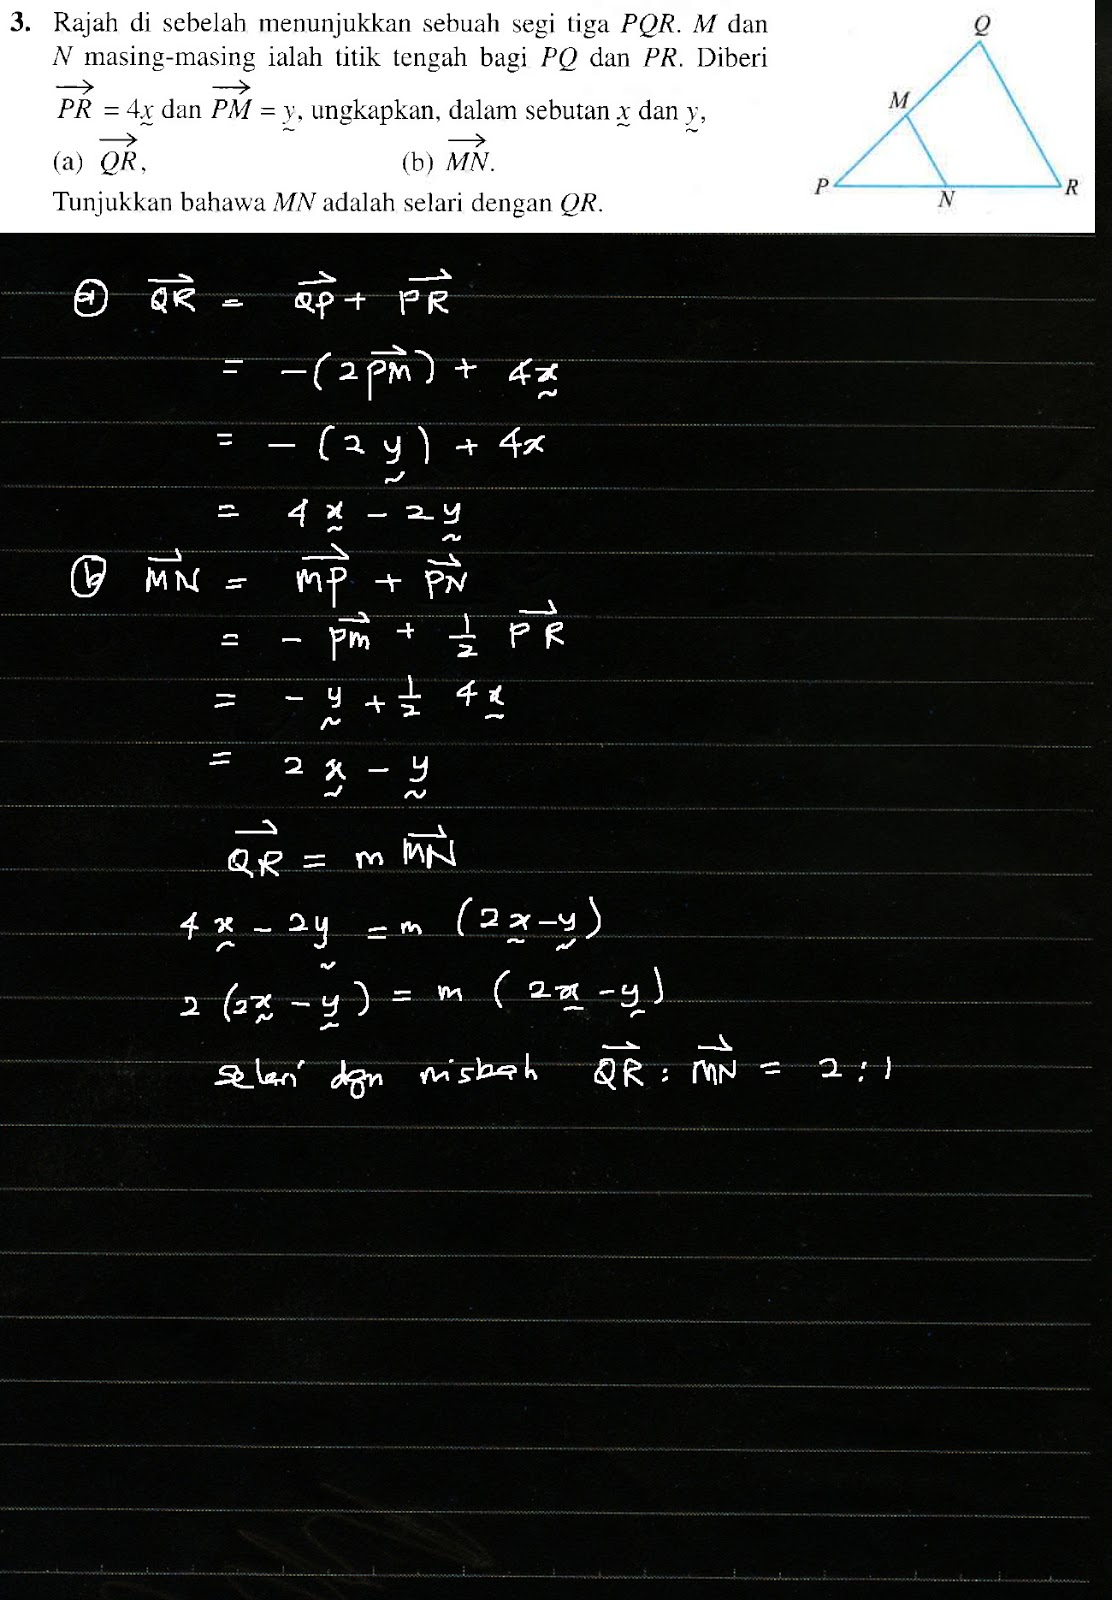 3. Rajah di sebelah menunjukkan sebuah segi tiga PQR. M dan
N masing-masing ialah titik tengah bagi PQ dan PR. Diberi
$\overrightarrow{PR}$ = 4x̰ dan $\overrightarrow{PM}$ = y̰, ungkapkan, dalam sebutan x̰ dan y̰,
(a) $\overrightarrow{QR}$, (b) $\overrightarrow{MN}$.
Tunjukkan bahawa MN adalah selari dengan QR.
Q
M
P
N
R
ⓐ $\overrightarrow{QR}$ = $\overrightarrow{QP}$ + $\overrightarrow{PR}$
= -(2$\overrightarrow{PM}$) + 4x̰
= -(2y̰) + 4x
= 4x̰ - 2y̰
ⓑ $\overrightarrow{MN}$ = $\overrightarrow{MP}$ + $\overrightarrow{PN}$
= - $\overrightarrow{PM}$ + 1/2 $\overrightarrow{PR}$
= - y̰ + 1/2 4x̰
= 2x̰ - y̰
$\overrightarrow{QR}$ = m $\overrightarrow{MN}$
4x̰ - 2y̰ = m (2x̰ - y̰)
2 (2x̰ - y̰) = m (2x̰ - y̰)
selari dgn nisbah $\overrightarrow{QR}$ : $\overrightarrow{MN}$ = 2 : 1